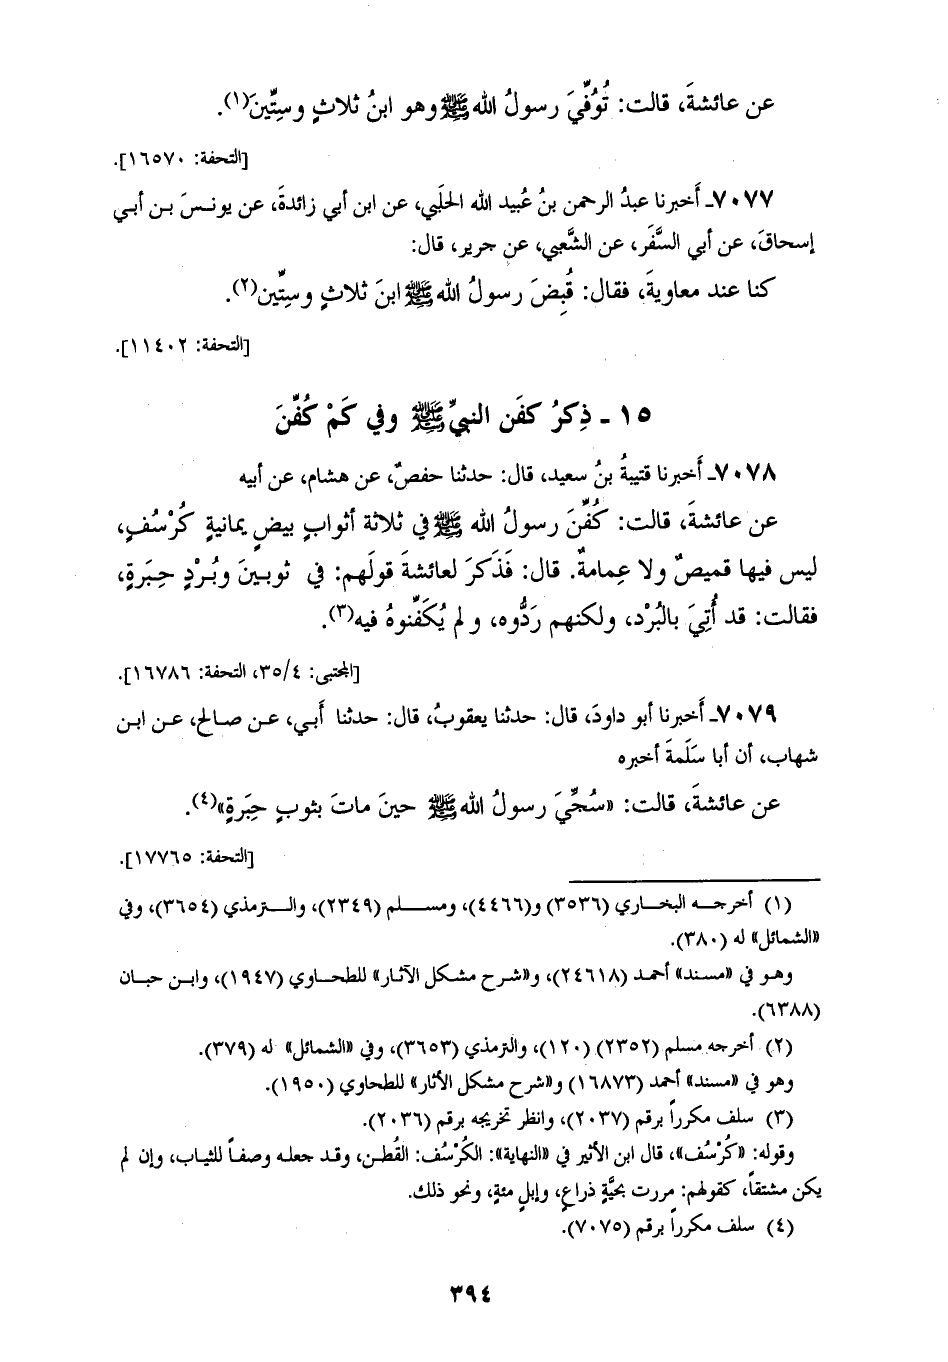 عن عائشةَ، قالت: تُوُفِّيَ رسولُ الله ﷺ وهو ابنُ ثلاثٍ وسِتِّينَ(١).
[التحفة: ١٦٥٧٠].
٧٠٧٧ـ أَخبرنا عبدُ الرحمن بنُ عُبيد الله الحلَبي، عن ابن أبي زائدةَ، عن يونسَ بن أبي
إسحاقَ، عن أبي السَّفَر، عن الشَّعبي، عن جرير، قال:
كنا عند معاويةَ، فقال: قُبِضَ رسولُ الله ﷺ ابنَ ثلاثٍ وسِتِّين(٢).
[التحفة: ١١٤٠٢].
١٥ ـ ذِكرُ كفَن النبيِّ ﷺ وفي كَمْ كُفِّنَ
٧٠٧٨ـ أَخبرنا قتيبةُ بنُ سعيد، قال: حدثنا حفصٌ، عن هشام، عن أبيه
عن عائشةَ، قالت: كُفِّنَ رسولُ الله ﷺ في ثلاثة أثوابٍ بيضٍ يمانيةٍ كُرْسُفٍ،
ليس فيها قميصٌ ولا عِمامةٌ. قال: فَذَكرَ لعائشةَ قولَهم: في ثوبينَ وبُرْدٍ حِبَرةٍ،
فقالت: قد أُتِيَ بالبُرْد، ولكنهم رَدُّوه، ولم يُكَفِّنوهُ فيه(٣).
[المجتبى: ٣٥/٤، التحفة: ١٦٧٨٦].
٧٠٧٩ـ أَخبرنا أبو داودَ، قال: حدثنا يعقوبُ، قال: حدثنا أَبي، عن صالح، عن ابن
شهاب، أن أبا سَلَمةَ أخبره
عن عائشةَ، قالت: «سُجِّيَ رسولُ الله ﷺ حينَ ماتَ بثوبٍ حِبَرةٍ»(٤).
[التحفة: ١٧٧٦٥].
(١) أخرجه البخاري (٣٥٣٦) و(٤٤٦٦)، ومسلم (٢٣٤٩)، والترمذي (٣٦٥٤)، وفي
«الشمائل» له (٣٨٠).
وهو في «مسند» أحمد (٢٤٦١٨)، و«شرح مشكل الآثار» للطحاوي (١٩٤٧)، وابن حبان
(٦٣٨٨).
(٢) أخرجه مسلم (٢٣٥٢) (١٢٠)، والترمذي (٣٦٥٣)، وفي «الشمائل» له (٣٧٩).
وهو في «مسند» أحمد (١٦٨٧٣) و«شرح مشكل الآثار» للطحاوي (١٩٥٠).
(٣) سلف مكرراً برقم (٢٠٣٧)، وانظر تخريجه برقم (٢٠٣٦).
وقوله: «كُرْسُف»، قال ابن الأثير في «النهاية»: الكُرْسُف: القُطن، وقد جعله وصفاً للثياب، وإن لم
يكن مشتقاً، كقولهم: مررت بحيَّةٍ ذراعٍ، وإبلٍ مئةٍ، ونحو ذلك.
(٤) سلف مكرراً برقم (٧٠٧٥).
٣٩٤